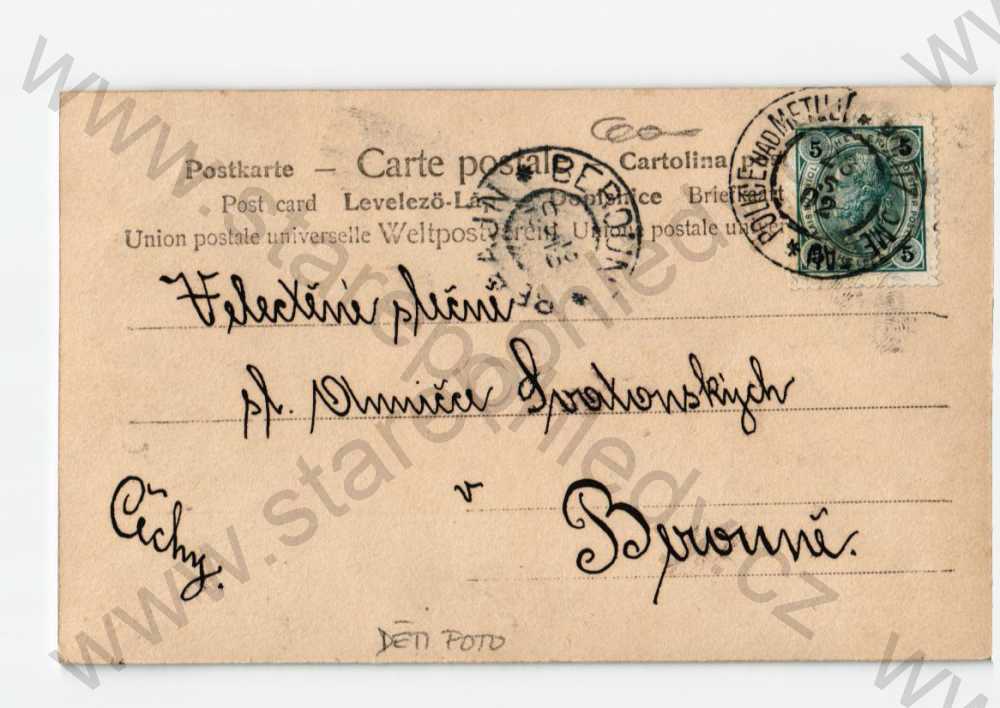 Postkarte – Carte postale Cartolina
Post card Levelező-La Dopisnice Briefkaart
Union postale universelle Weltpostverein Unione postale univer
BEROUN * BERAUN *
* POLICE NAD METUJÍ *
5 5
5 5
Velectěné slečně
sl. Anničce Svatonských
v Berouně.
Čechy.
DĚTI FOTO
www.starepohledy.cz